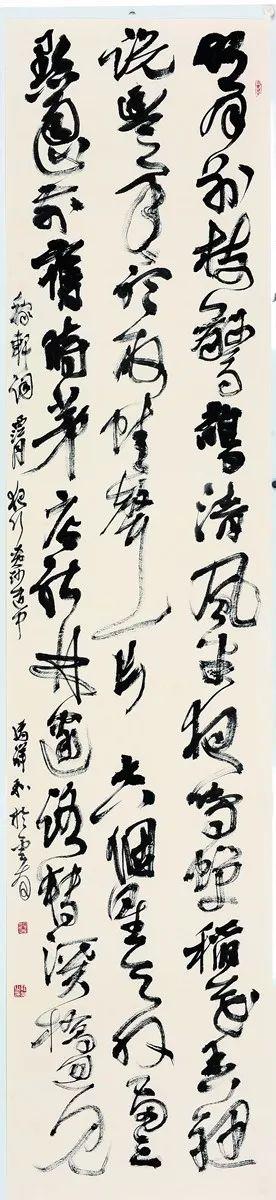 明月別枝驚鵲清風半夜鳴蟬稻花香裡
說豐年聽取蛙聲一片 七八個星天外兩三
點雨山前舊時茅店社林邊路轉溪橋忽見
稼軒詞西江月夜行黃沙道中